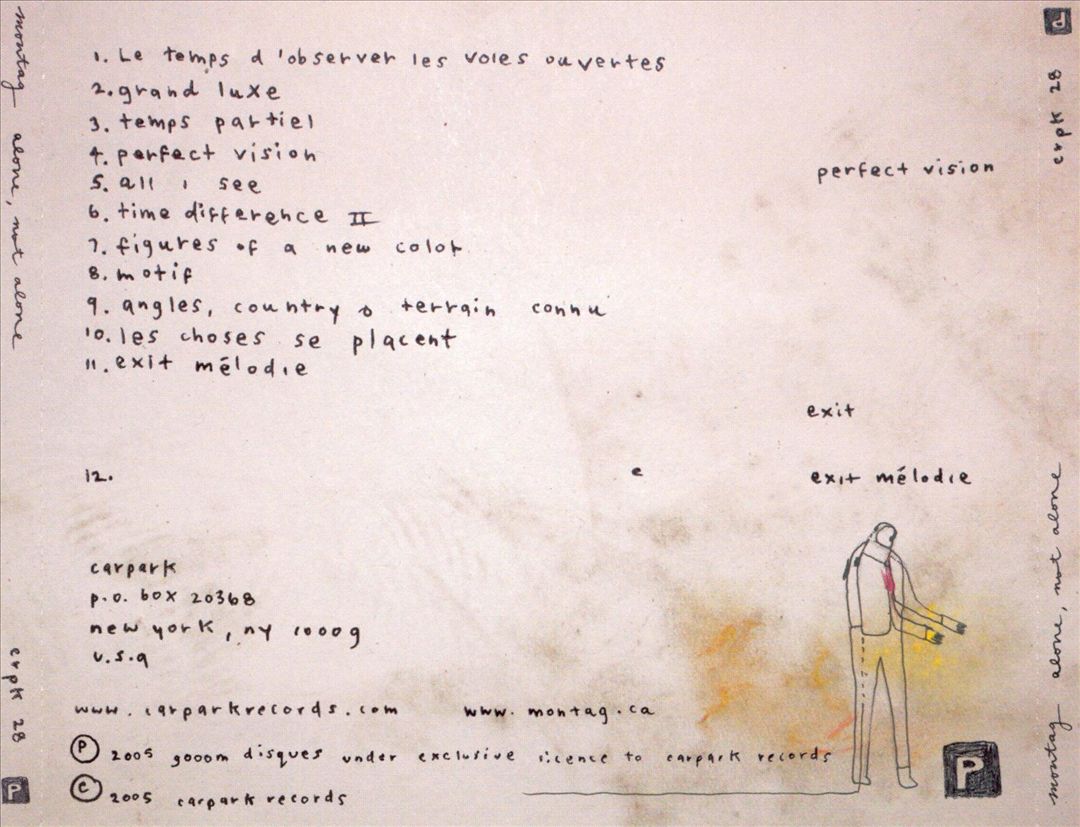 montag alone, not alone
crpk 28
P
1. Le temps d'observer les voies ouvertes
2. grand luxe
3. temps partiel
4. perfect vision
5. all i see
6. time difference II
7. figures of a new color
8. motif
9. angles, country & terrain connu
10. les choses se placent
11. exit mélodie
12.
e
perfect vision
exit
exit mélodie
carpark
p.o. box 20368
new york, ny 10009
u.s.a
www.carparkrecords.com www.montag.ca
P 2005 gooom disques under exclusive licence to carpark records
C 2005 carpark records
P
P
crpk 28
montag alone, not alone